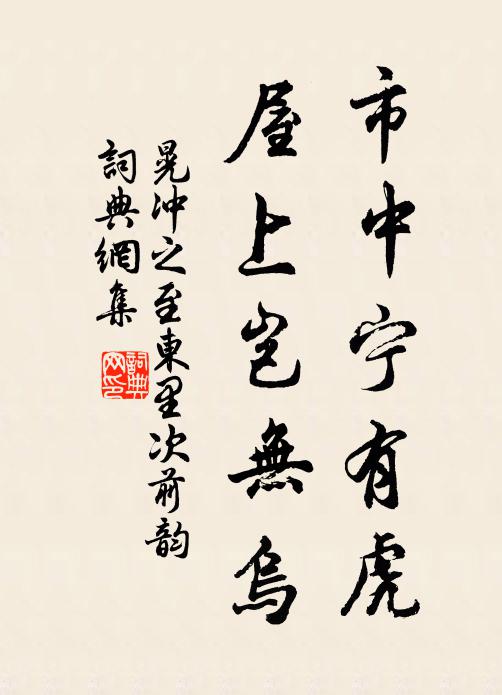 市中宁有虎
屋上岂無烏
晁冲之至東里次前韵
詞典網集
詞典網印